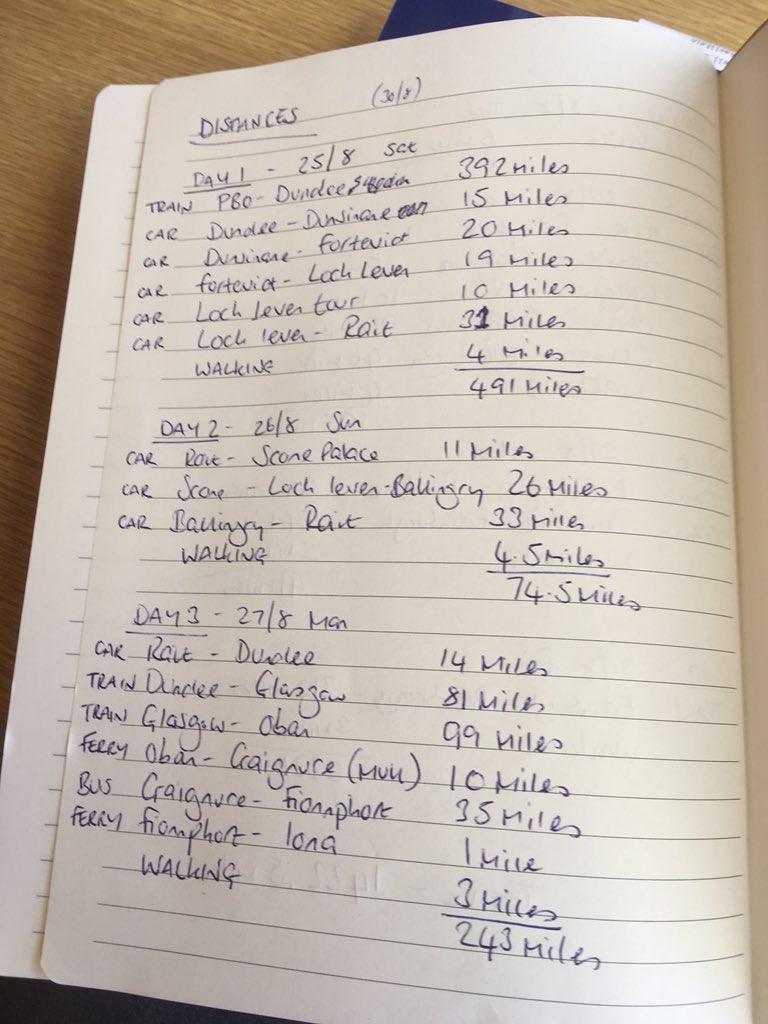 (30/8)
DISTANCES
DAY 1 - 25/8 Sat
TRAIN PBO - Dundee 392 Miles
CAR Dundee - Dunsinane 15 Miles
CAR Dunsinane - Forteviot 20 Miles
CAR Forteviot - Loch Leven 19 Miles
CAR Loch Leven tour 10 Miles
CAR Loch Leven - Rait 31 Miles
WALKING 4 Miles
491 Miles
DAY 2 - 26/8 Sun
CAR Rait - Scone Palace 11 Miles
CAR Scone - Loch Leven - Ballingry 26 Miles
CAR Ballingry - Rait 33 Miles
WALKING 4.5 Miles
74.5 Miles
DAY 3 - 27/8 Mon
CAR Rait - Dundee 14 Miles
TRAIN Dundee - Glasgow 81 Miles
TRAIN Glasgow - Oban 99 Miles
FERRY Oban - Craignure (Mull) 10 Miles
BUS Craignure - Fionnphort 35 Miles
FERRY Fionnphort - Iona 1 Mile
WALKING 3 Miles
243 Miles